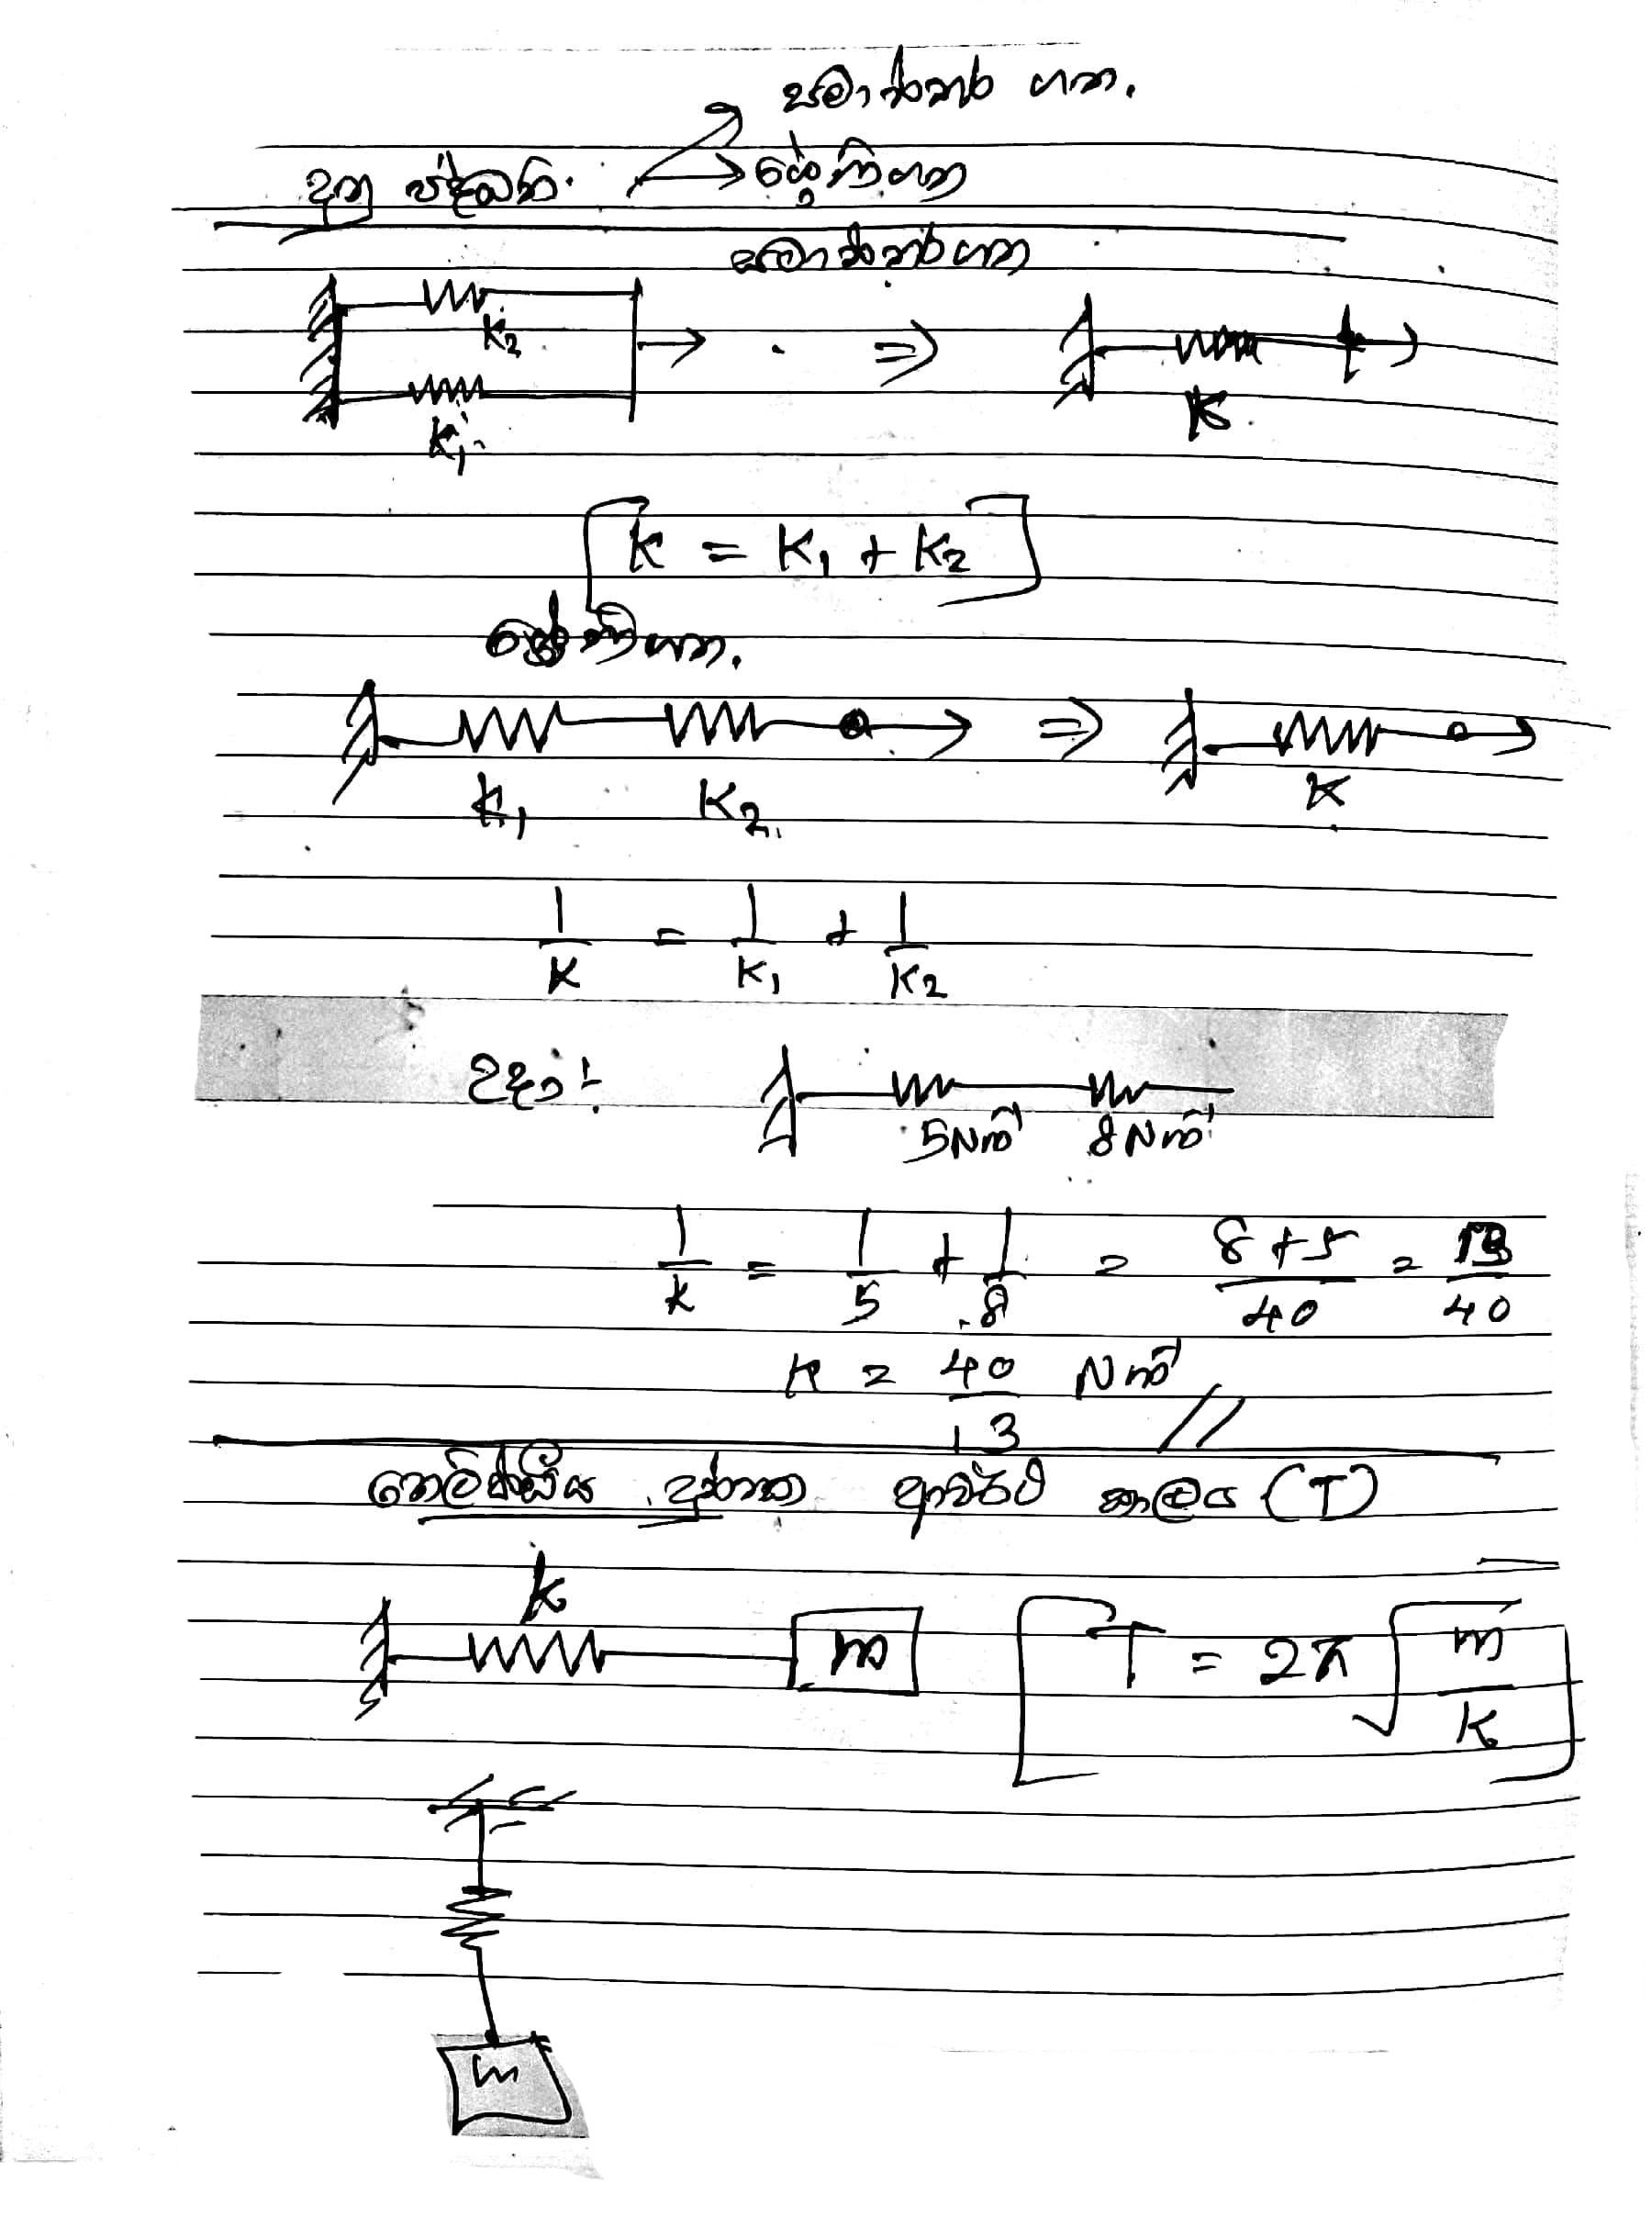 සමාන්තර ගත.
දුනු පද්ධති. → ශ්‍රේණිගත
සමාන්තරගත
K₂
K₁
⇒ K
k = K₁ + K₂
ශ්‍රේණිගත.
K₁ K₂ ⇒ K
1/K = 1/K₁ + 1/K₂
උදා:- 5Nm⁻¹ 8Nm⁻¹
1/K = 1/5 + 1/8 = 8+5/40 = 13/40
K = 40/13 Nm⁻¹ //
දුන්නක ආවර්ත කාලය (T)
k
m T = 2π√m/K
m